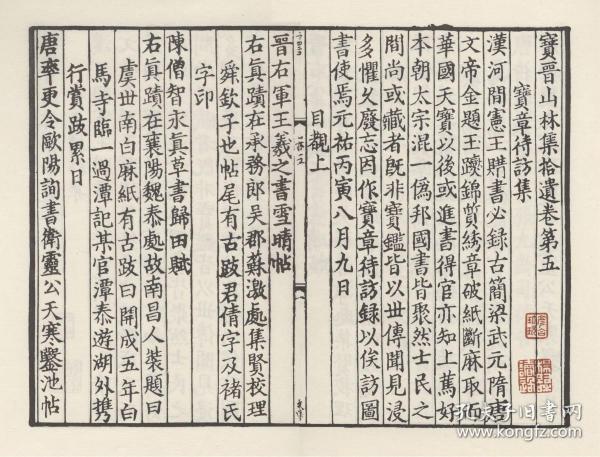 寶晉山林集拾遺卷第五
寶章待訪集
漢河間憲王購書必錄古簡梁武元隋唐
文帝金題玉躞錦贉綉章破紙斷麻取而
華國天寶以後或進書得官亦知上篤好
本朝太宗混一僞邦國書皆聚然士民之
間尚或藏者旣非寶鑑皆以世傳聞見浸
多懼久廢忘因作寶章待訪錄以俟訪圖
書使焉元祐丙寅八月九日
目覩上
晉右軍王羲之書雪晴帖
右眞蹟在承務郎吳郡蘇激處集賢校理
舜欽子也帖尾有古跋君倩字及褚氏
字印
陳僧智永眞草書歸田賦
右眞蹟在襄陽魏泰處故南昌人裝題曰
虞世南白麻紙有古跋曰開成五年白
馬寺臨一過潭記某官潭泰遊湖外攜
行賞跋累日
唐率更令歐陽詢書衛靈公天寒鑿池帖
孔夫子旧书网
www.kongfz.com